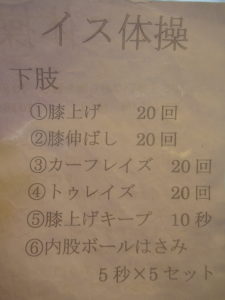 イス体操
下肢
①膝上げ 20回
②膝伸ばし 20回
③カーフレイズ 20回
④トゥレイズ 20回
⑤膝上げキープ 10秒
⑥内股ボールはさみ
5秒×5セット